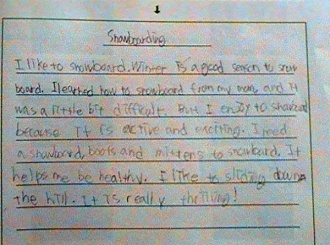 Snowboarding
I like to snowboard. Winter is a good season to snow
board. I learned how to snowboard from my mom, and it
was a little bit difficult. But I enjoy to
because it is active and exciting. I need
a snowboard, boots and mittens to snowboard. It
helps me be healthy. I like to sliding down
the hill. It is really thrilling!